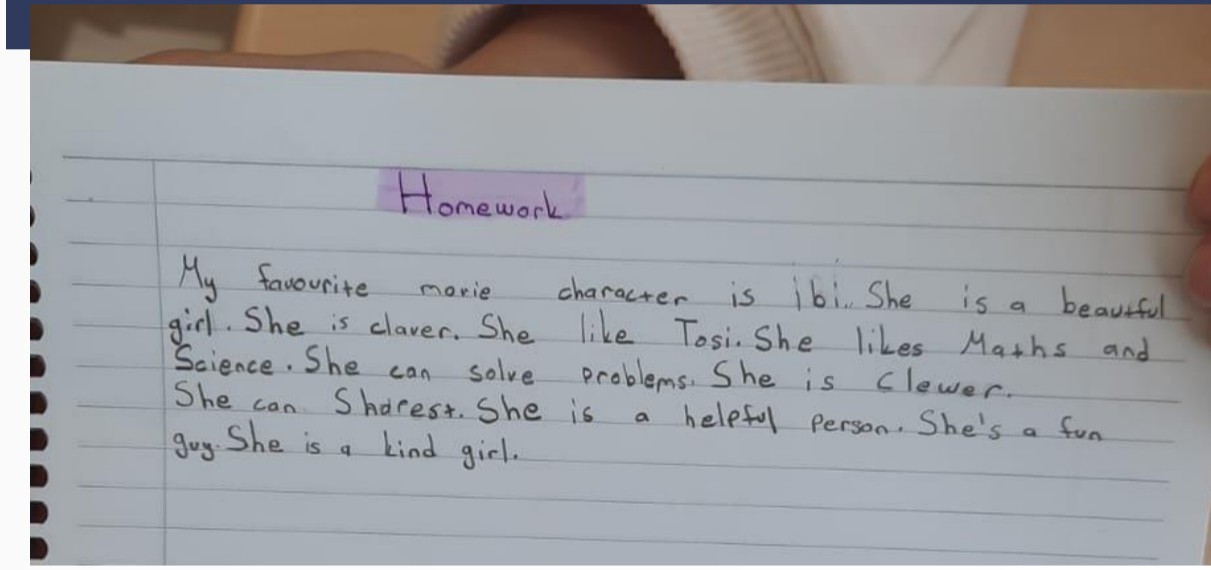 Homework
My favourite movie character is ibi. She is a beautful
girl. She is claver. She like Tosi. She likes Maths and
Science. She can solve problems. She is Clewer.
She can Sharest. She is a helpful Person. She's a fun
guy. She is a kind girl.